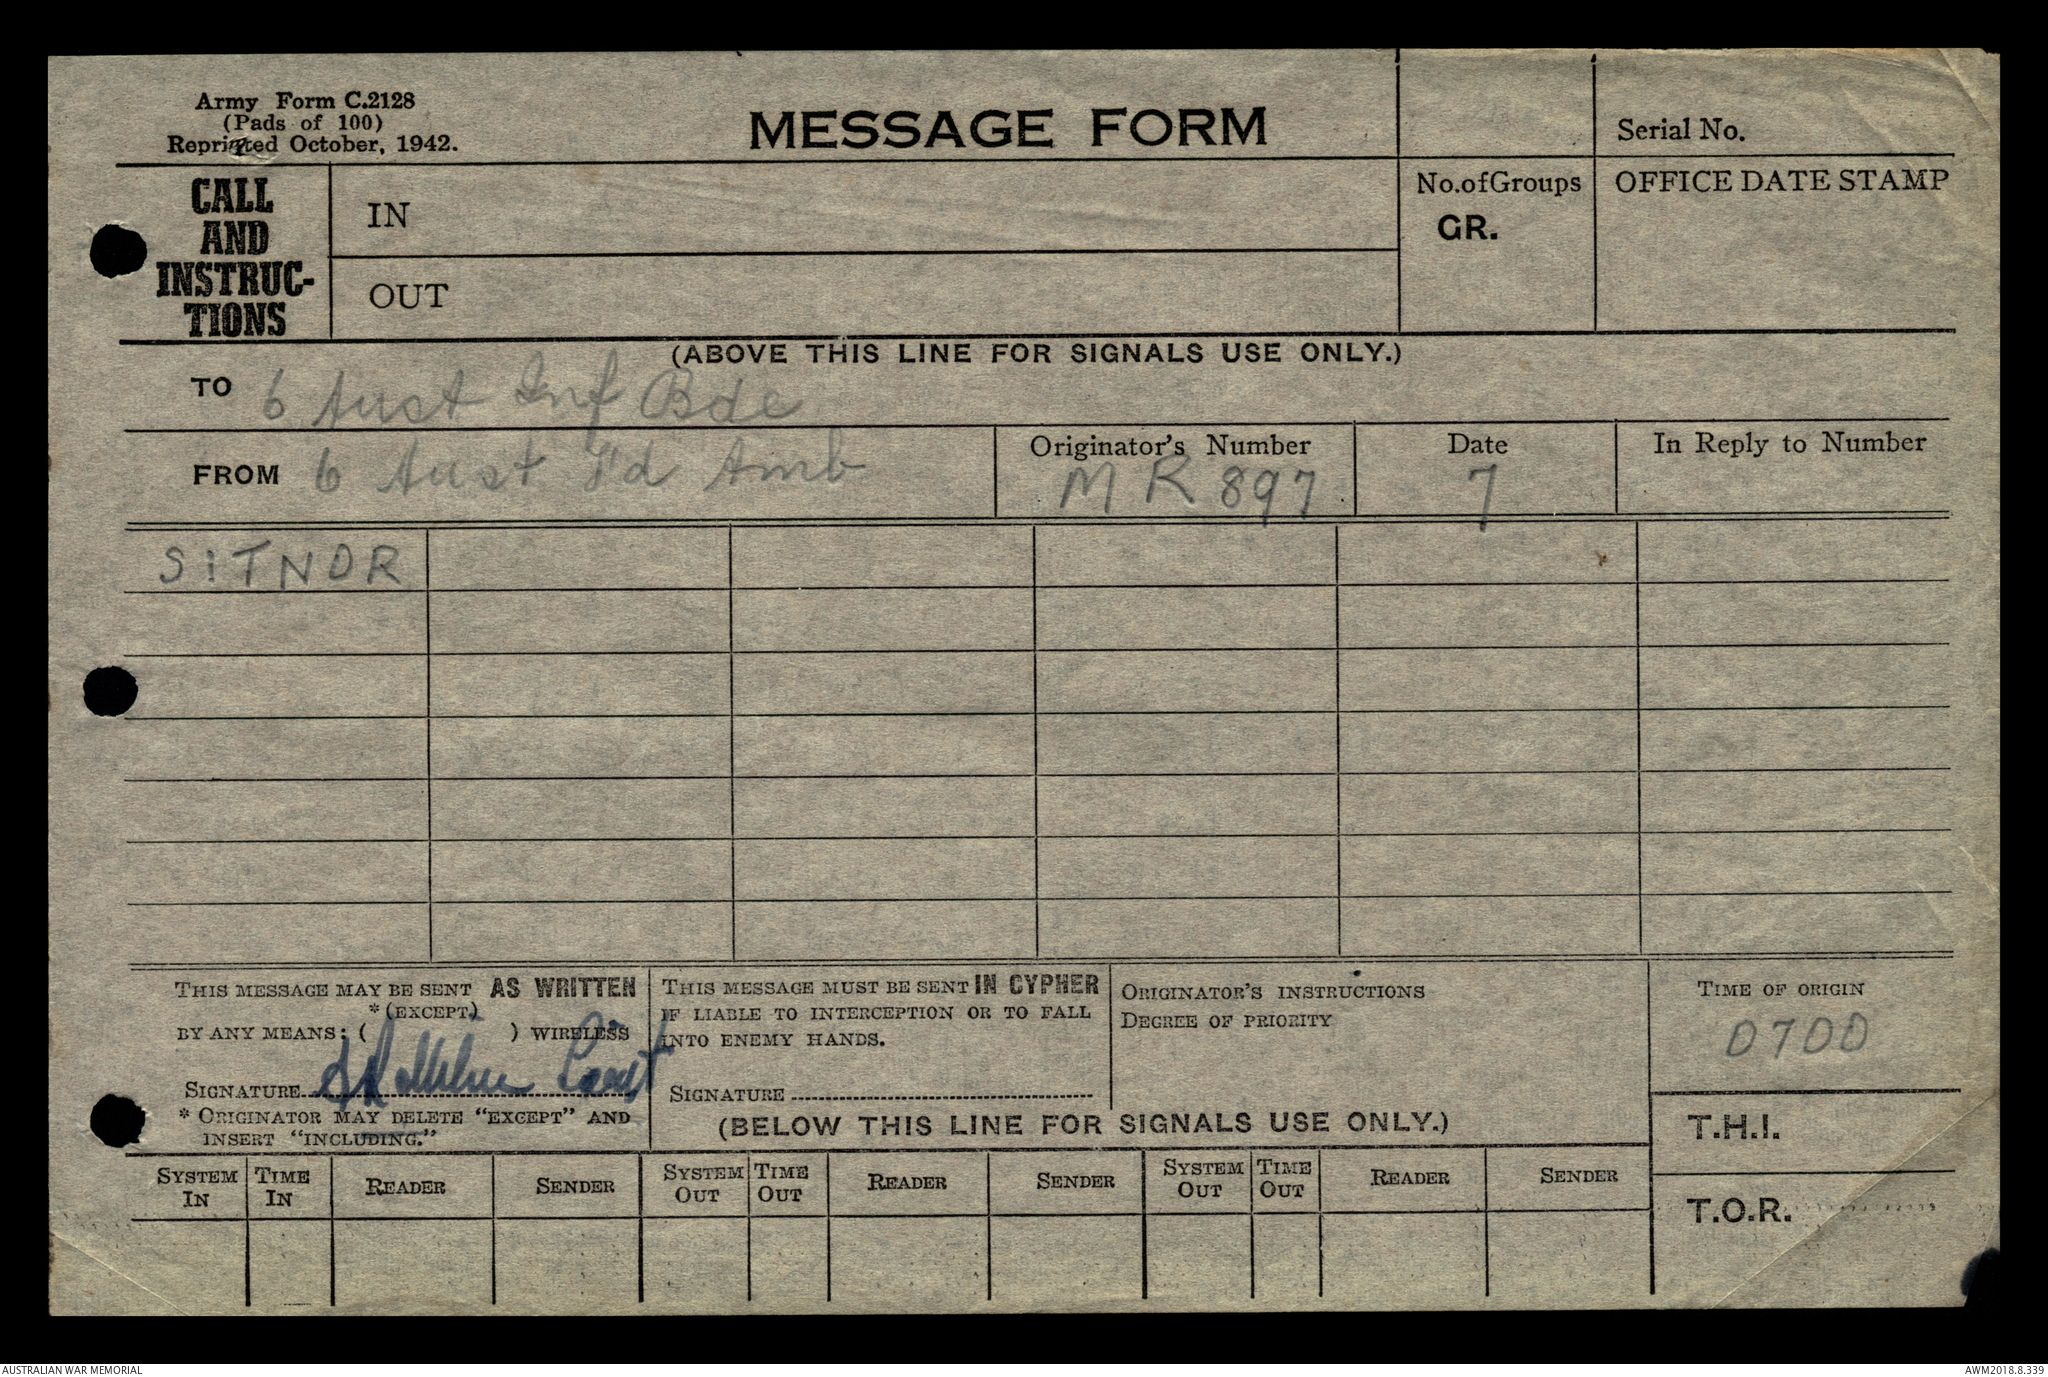 Army Form C.2128
(Pads of 100)
Reprinted October, 1942.
MESSAGE FORM
Serial No.
CALL
AND
INSTRUC-
TIONS
IN
OUT
No.ofGroups
GR.
OFFICE DATE STAMP
(ABOVE THIS LINE FOR SIGNALS USE ONLY.)
TO 6 Aust Inf Bde
FROM 6 Aust Fd Amb
Originator's Number
MR 897
Date
7
In Reply to Number
SITNOR
THIS MESSAGE MAY BE SENT AS WRITTEN
*(EXCEPT)
BY ANY MEANS: ( ) WIRELESS
SIGNATURE
* ORIGINATOR MAY DELETE "EXCEPT" AND
INSERT "INCLUDING."
THIS MESSAGE MUST BE SENT IN CYPHER
IF LIABLE TO INTERCEPTION OR TO FALL
INTO ENEMY HANDS.
SIGNATURE
ORIGINATOR'S INSTRUCTIONS
DEGREE OF PRIORITY
TIME OF ORIGIN
0700
(BELOW THIS LINE FOR SIGNALS USE ONLY.)
T.H.I.
T.O.R.
SYSTEM IN
TIME IN
READER
SENDER
SYSTEM OUT
TIME OUT
READER
SENDER
SYSTEM OUT
TIME OUT
READER
SENDER
AUSTRALIAN WAR MEMORIAL
AWM2018.8.339